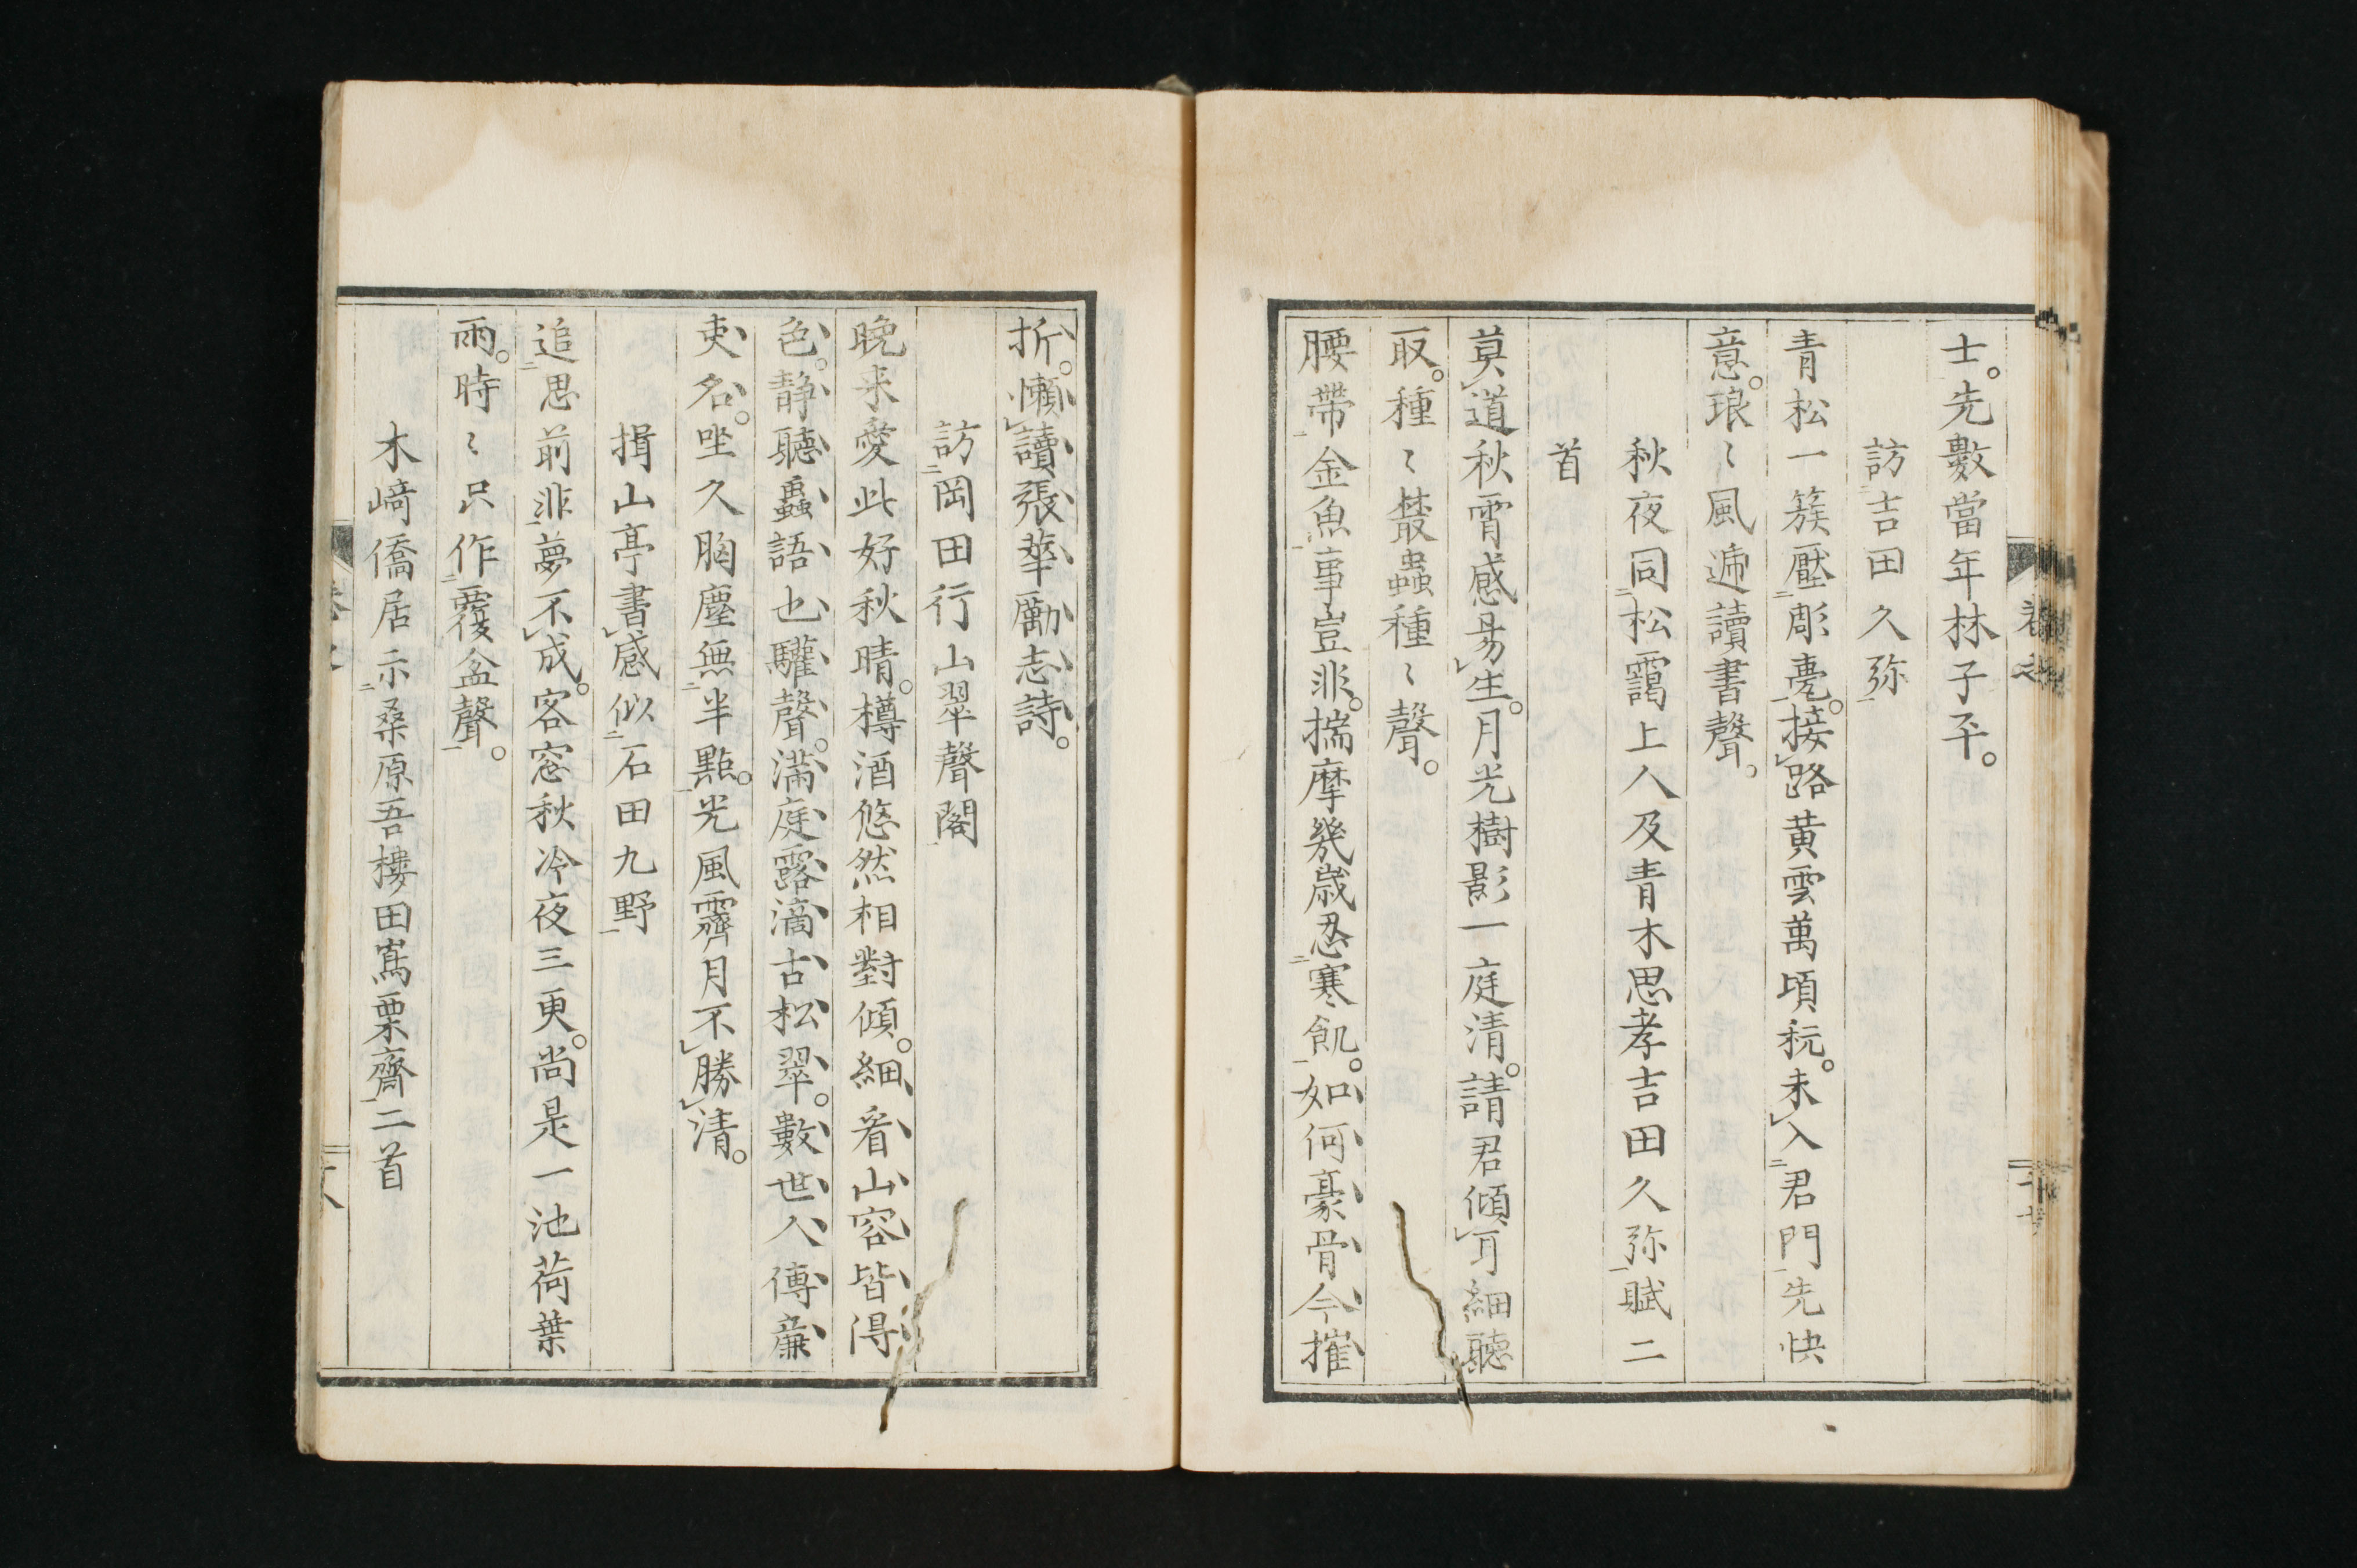 士。先數當年林子平。
訪二吉田久弥一
青松一簇壓二彫甍一。接レ路黄雲萬頃秔。未レ入二君門一先快
意。琅〻風遞讀書聲。
秋夜同二松靄上人及青木思孝吉田久弥一賦二
首
莫レ道秋霄感易レ生。月光樹影一庭清。請君傾レ耳細聽
取。種〻叢蟲種〻聲。
腰帶一金魚一事豈非。揣摩幾歳忍二寒飢一。如何豪骨今摧
折。懶レ讀張華勵志詩。
訪二岡田行山翠聲閣一
晩来愛此好秋晴。樽酒悠然相對傾。細看山容皆得
色。静聽蟲語也驩聲。滿庭露滴古松翠。數世人傳廉
吏名。坐久胸塵無二半點一。光風霽月不レ勝レ清。
揖山亭書レ感似二石田九野一
追二思前非一夢不レ成。客窓秋冷夜三更。尚是一池荷葉
雨。時〻只作二覆盆聲一。
木﨑僑居示二桑原吾樓田寫栗齋一二首